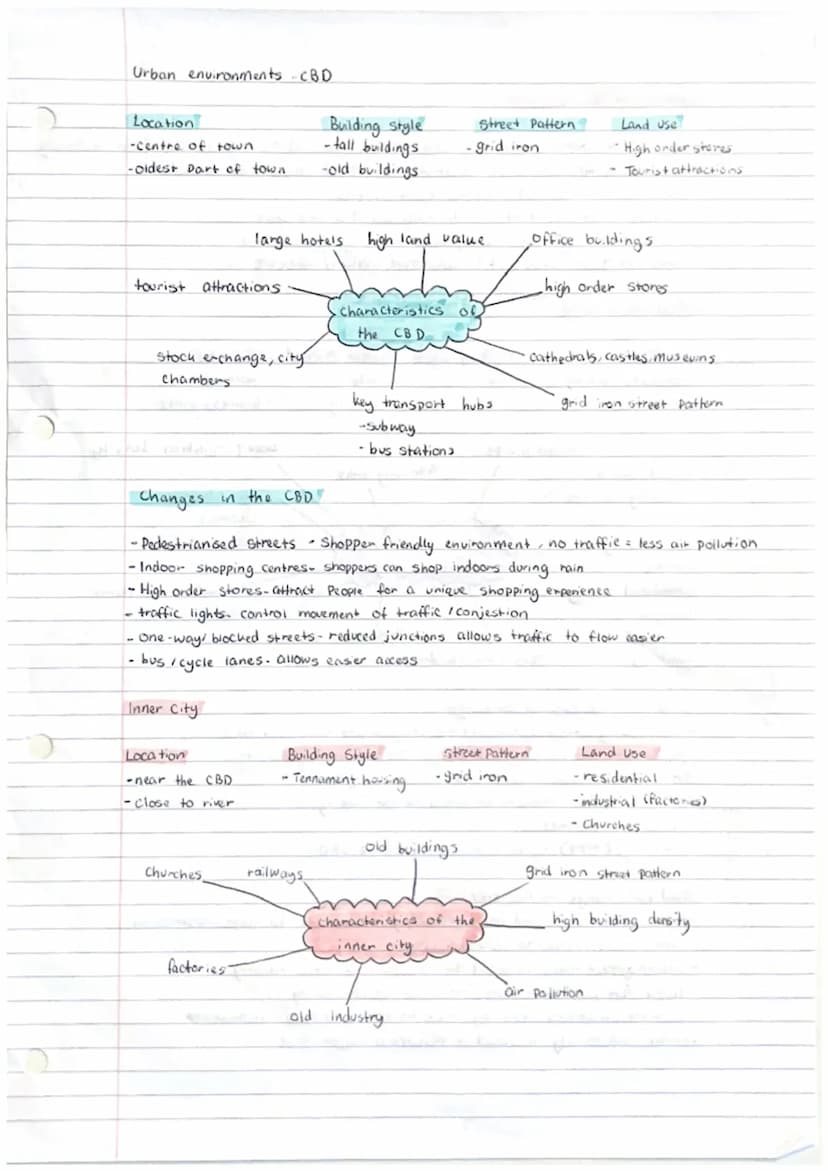 Urban environments - CBD
Location Building Style Street Pattern Land Use
-centre of town -tall buildings -grid iron - High order stores
-oldest part of town -old buildings - Tourist attractions
large hotels high land value Office buildings
tourist attractions high order stores
Characteristics of
the CBD
stock exchange, city
chambers
cathedrals, castles, museums
key transport hubs
-subway
- bus stations
grid iron street pattern
Changes in the CBD
- Pedestrianised streets - Shopper friendly environment, no traffic = less air pollution
- Indoor shopping centres- shoppers can shop indoors during rain
- High order stores- attract People for a unique shopping experience
- traffic lights- control movement of traffic / conjestion
- One-way/ blocked streets- reduced junctions allows traffic to flow easier
- bus / cycle lanes- allows easier access
Inner City
Location Building Style Street Pattern Land Use
-near the CBD - Tennament housing -grid iron -residential
-Close to river -industrial (factories)
- Churches
old buildings
Churches railways grid iron street pattern
characteristics of the
inner city
high building density
factories
air pollution
old industry